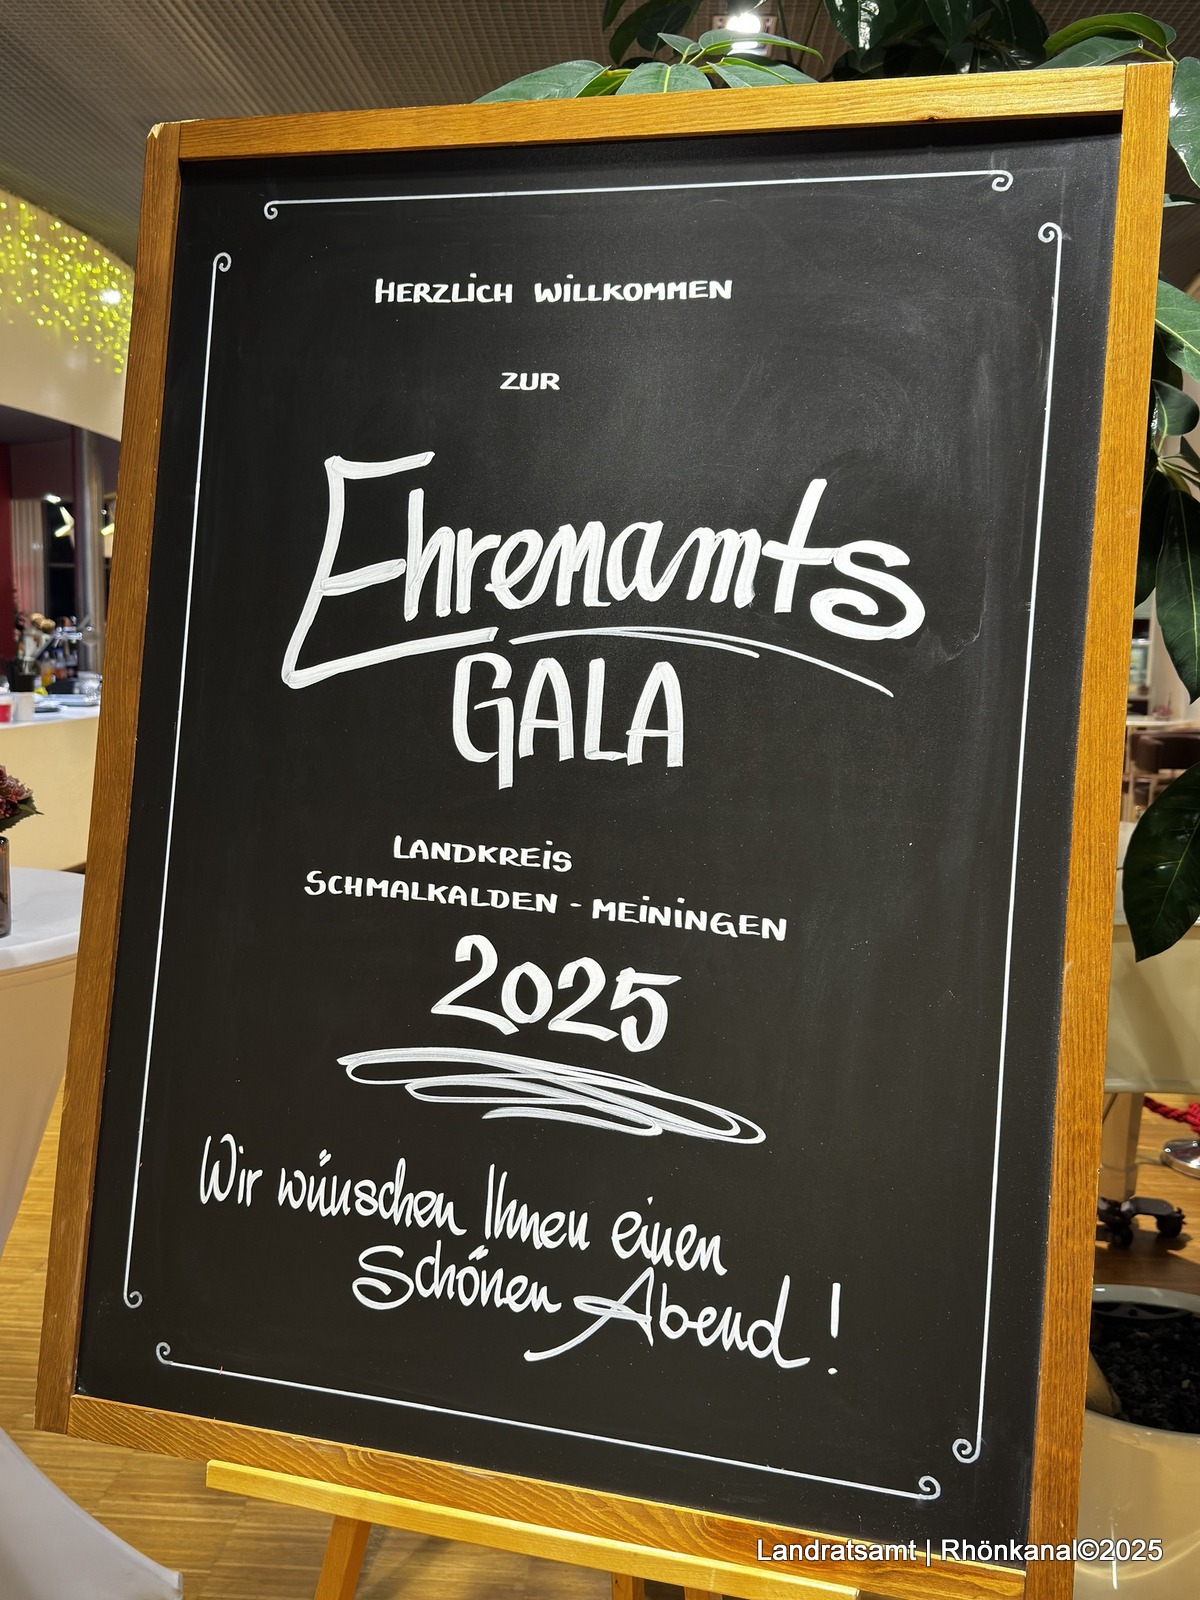 HERZLICH WILLKOMMEN
ZUR
Ehrenamts
GALA
LANDKREIS
SCHMALKALDEN - MEININGEN
2025
Wir wünschen Ihnen einen
Schönen Abend!
Landratsamt | Rhönkanal©2025